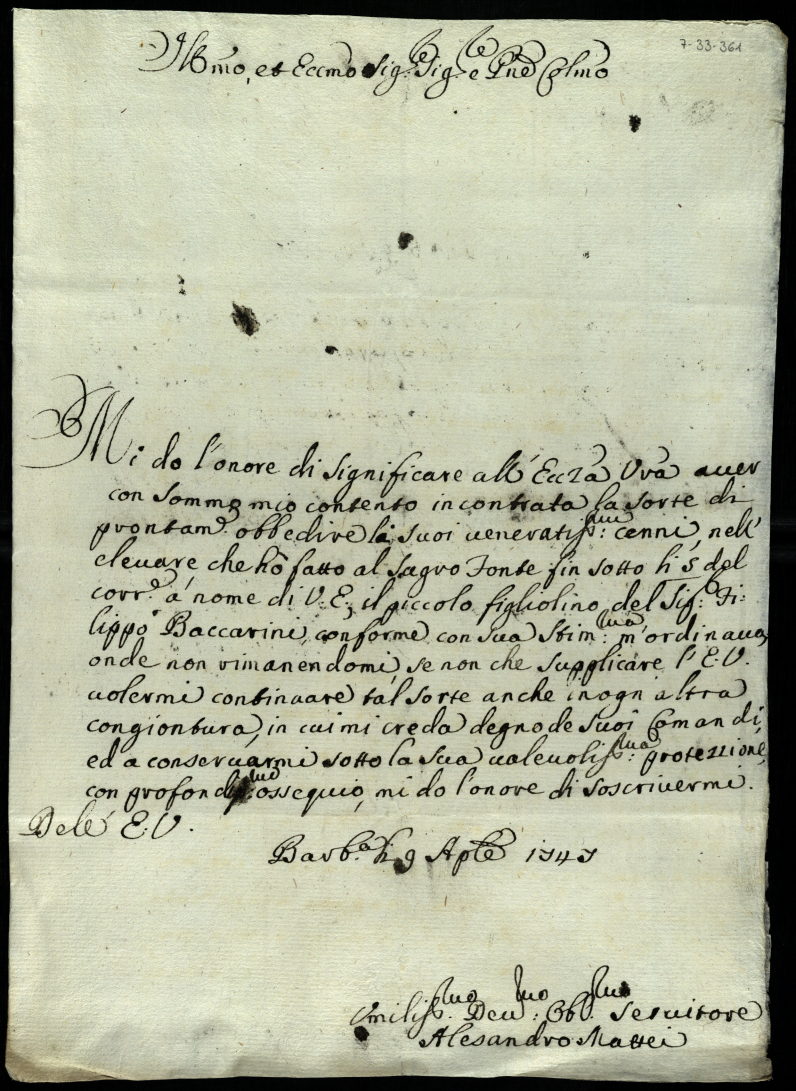 7-33-361
Illmo, et Eccmo Sig.re Sig.re e Pne Colmo
Mi do l'onore di significare all'Ecc.za Vra aver
con sommo mio contento incontrata la sorte di
prontam.e obbedire li suoi veneratiss.mi: cenni, nell'
elevare che hò fatto al Sagro Fonte fin sotto li 5 del
corr.e a nome di V.E., il piccolo figliolino del Sig.r: Fi-
lippo Baccarini, conforme con sua stim.ma: m'ordinava,
onde non rimanendomi, se non che supplicare l'E.V.
volermi continuare tal sorte anche in ogn altra
congiontura, in cui mi creda degno de suoi Comandi,
ed a conservarmi sotto la sua valevoliss.ma: protezzione,
con profondiss.mo ossequio, mi do l'onore di soscrivermi.
Dele E.V.
Barb.a li 9 Aple 1747
Umiliss.mo Dev.mo: Obb.mo Servitore
Alesandro Mattei